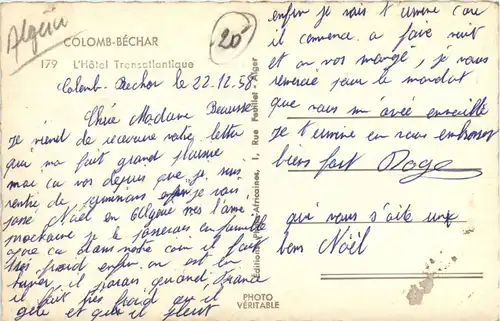 Algérie
20
COLOMB-BÉCHAR
179 L'Hôtel Transatlantique
Colomb-Bechar le 22.12.58
Chère Madame
Je viend de recevoire votre lettre
qui ma fait grand plaisire
moi ca vas depuis que je suis
rentré de permission enfin je vais
passé Noël en Algérie mes l'anné
prochaine je le passerais en famille
que ca dans notre coin il fait
très froid enfin on est en
hiver il parais quand France
il fait très froid qu'il
gele et que il pleut
enfin je vais terminé care
il commence a faire nuit
et on vas mangé, je vous
remercie pour le mandat
que vous m'avé envoillé
Je termine en vous embrassez
biens fort Roger
qui vous s'aite une
bon Noël
Editions Photo-Africaines, 1, Rue Pothilet - Alger
PHOTO
VÉRITABLE